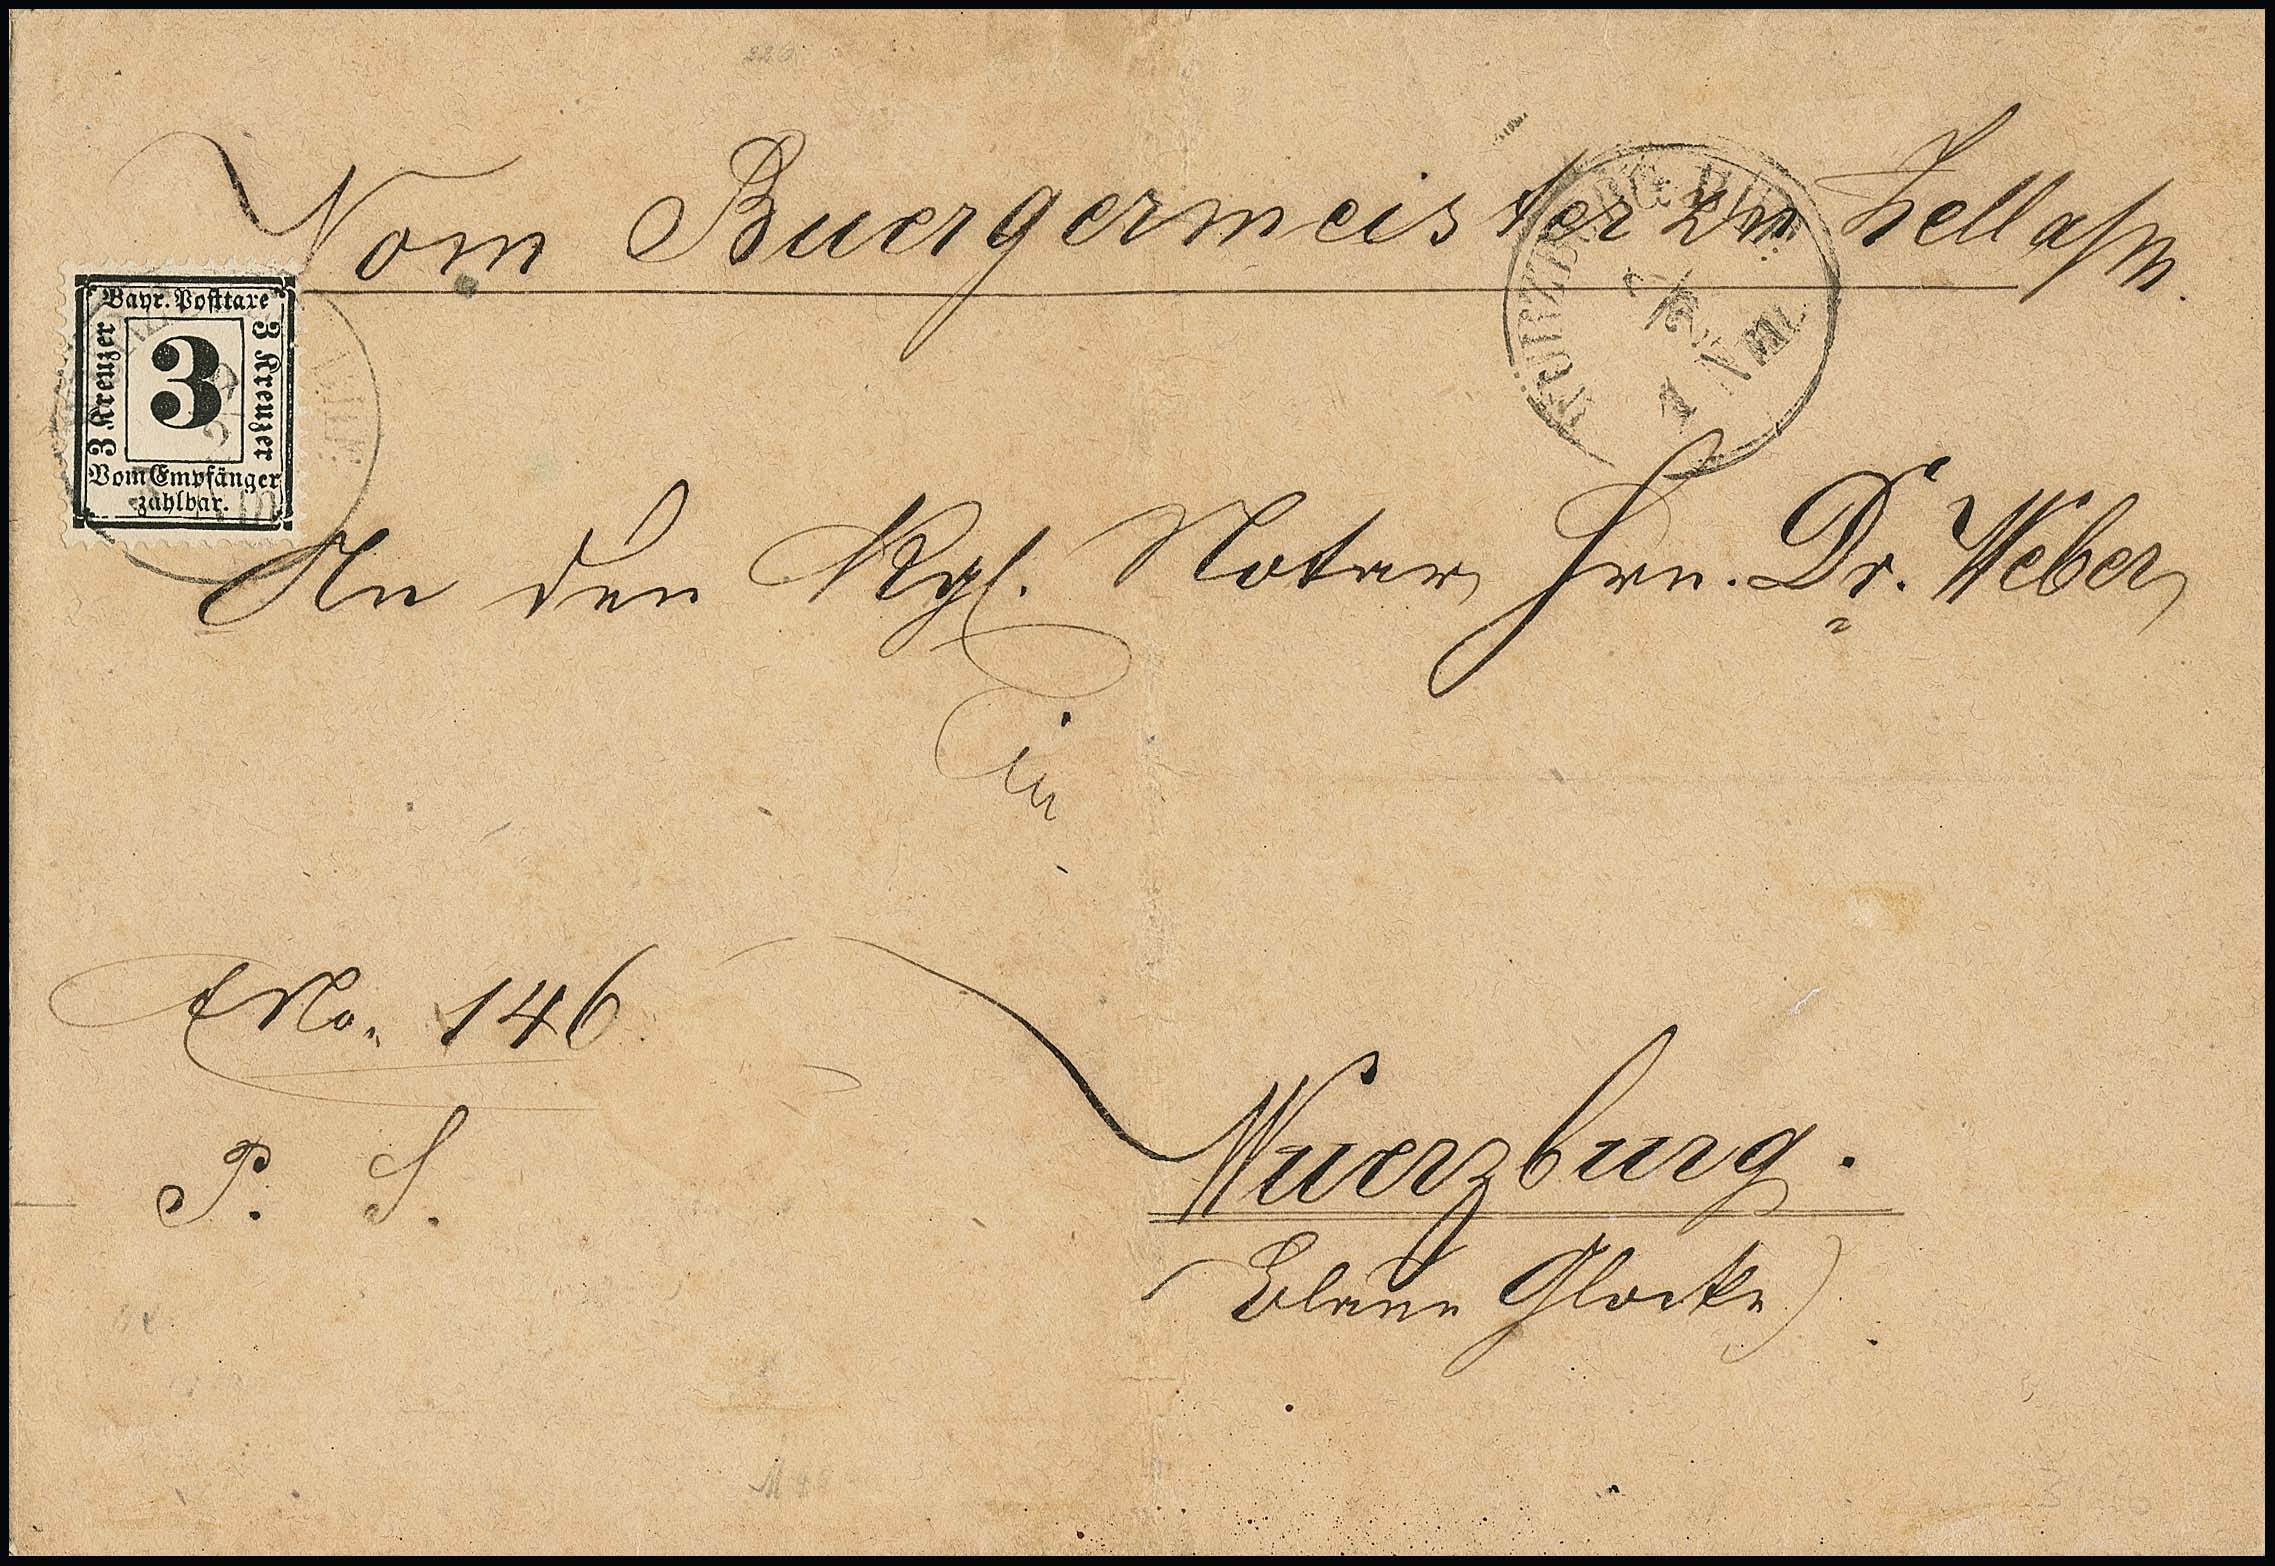 Vom Buergermeister zu Zell a/M.
Bayr. Posttaxe
3 Kreuzer
3
3 Kreuzer
Vom Empfänger
zahlbar.
WÜRZBURG
1 NM
An den Kgl. Notar Hrn. Dr. Weber
in
ENo. 146
P. S.
Wuerzburg.
(Blaue Glocke)